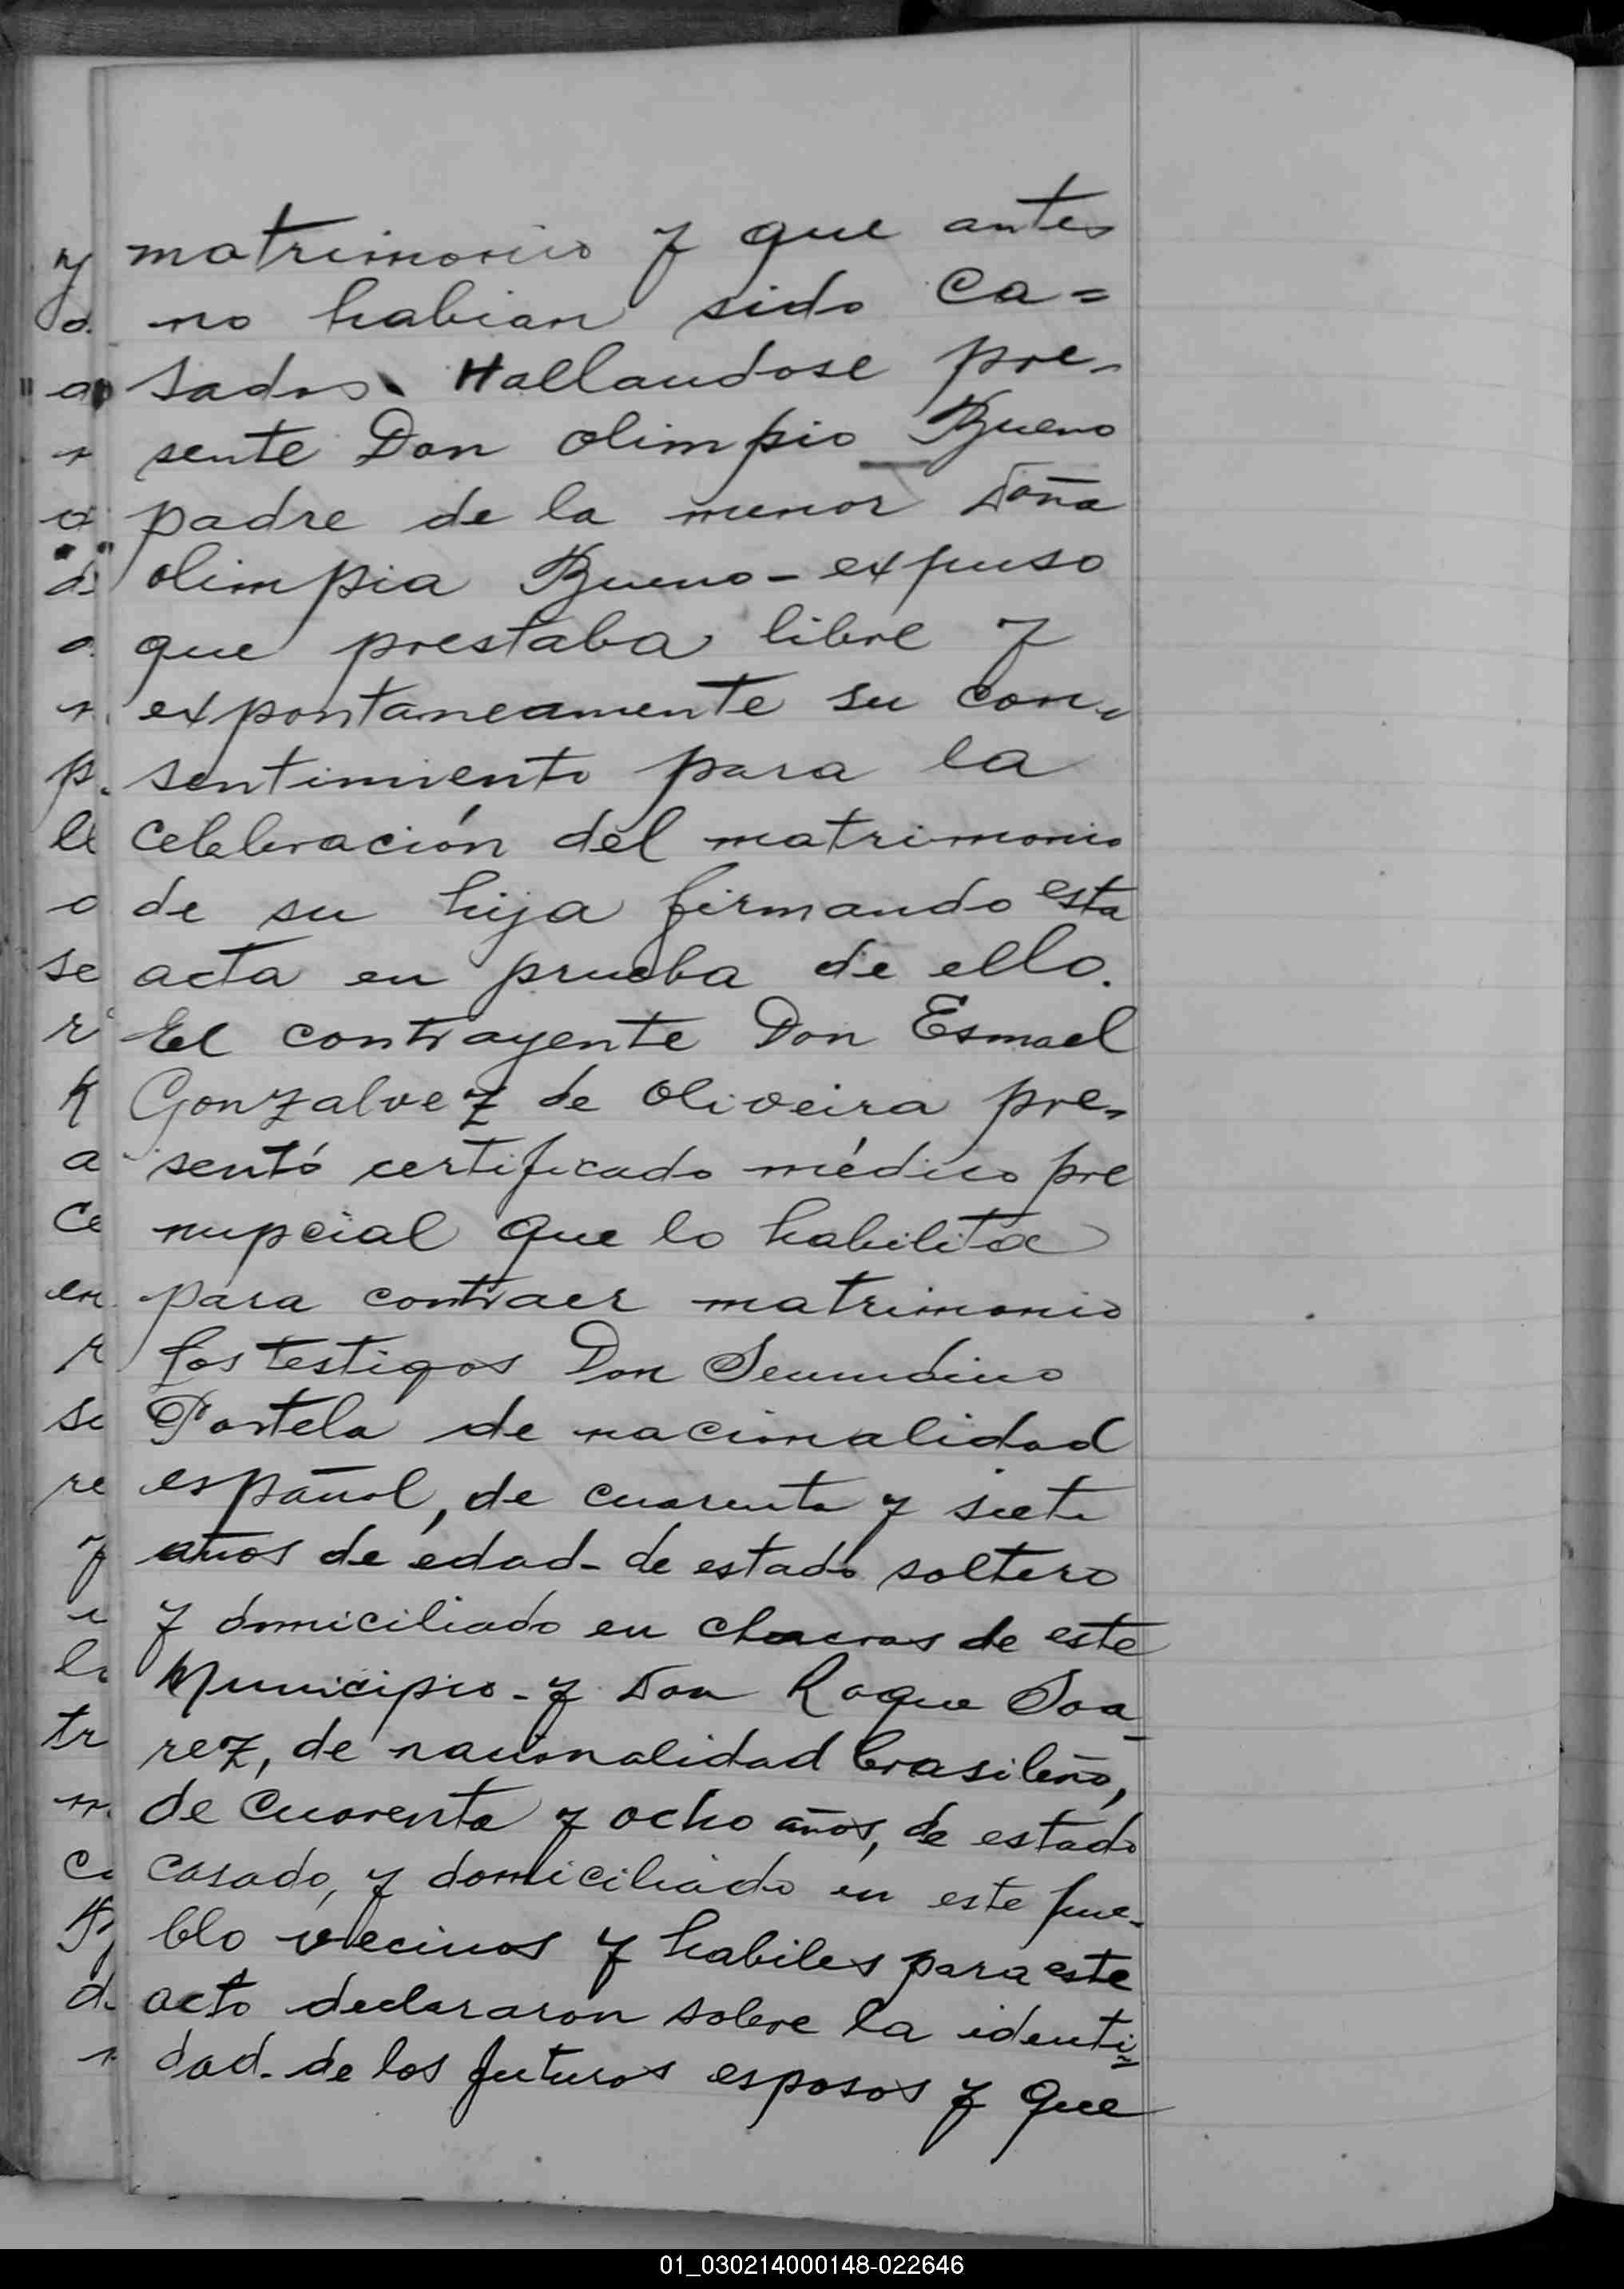 matrimonio y que antes
no habian sido Ca=
sados. Hallandose pre-
sente Don Olimpio Bueno
padre de la menor Doña
Olimpia Bueno - expuso
que prestaba libre y
expontaneamente su con-
sentimiento para la
celebración del matrimonio
de su hija firmando esta
acta en prueba de ello.
El contrayente Don Esmael
Gonzalvez de Oliveira pre-
sentó certificado médico pre
nupcial que lo habilita
para contraer matrimonio
Los testigos Don Secundino
Portela de nacionalidad
español, de cuarenta y siete
años de edad - de estado soltero
y domiciliado en chacras de este
Municipio - y Don Roque Soa-
rez, de nacionalidad brasileño,
de cuarenta y ocho años, de estado
casado, y domiciliado en este pue-
blo vecinos y habiles para este
acto declararon sobre la identi=
dad - de los futuros esposos y que
01_030214000148-022646